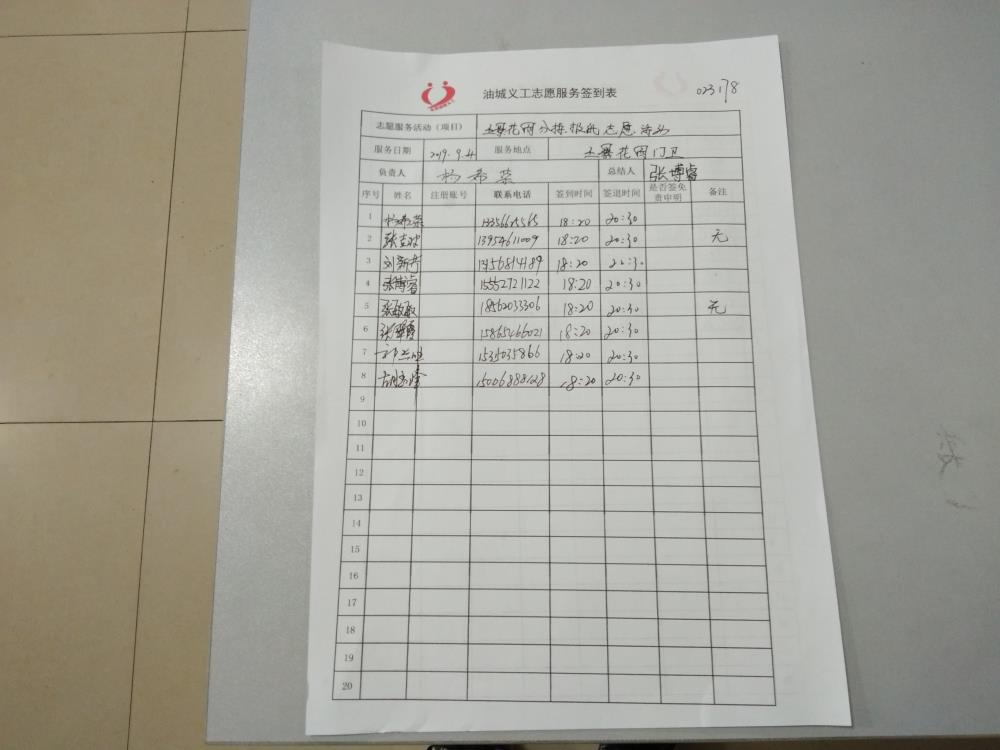 油城义工志愿服务签到表
023178
志愿服务活动（项目） 花园分拣报纸志愿活动
服务日期 2019.9.4 服务地点 花园门卫
负责人 杨希荣 总结人 张博睿
序号 姓名 注册账号 联系电话 签到时间 签退时间 是否签免责申明 备注
1 杨希荣 18:20 20:30
2 13954611009 18:20 20:30 无
3 刘新奇 18:20 20:30
4 张博睿 15552721122 18:20 20:30
5 张敏敏 18562033306 18:20 20:30 无
6 15865466021 18:20 20:30
7 18:20 20:30
8 18:20 20:30
9
10
11
12
13
14
15
16
17
18
19
20